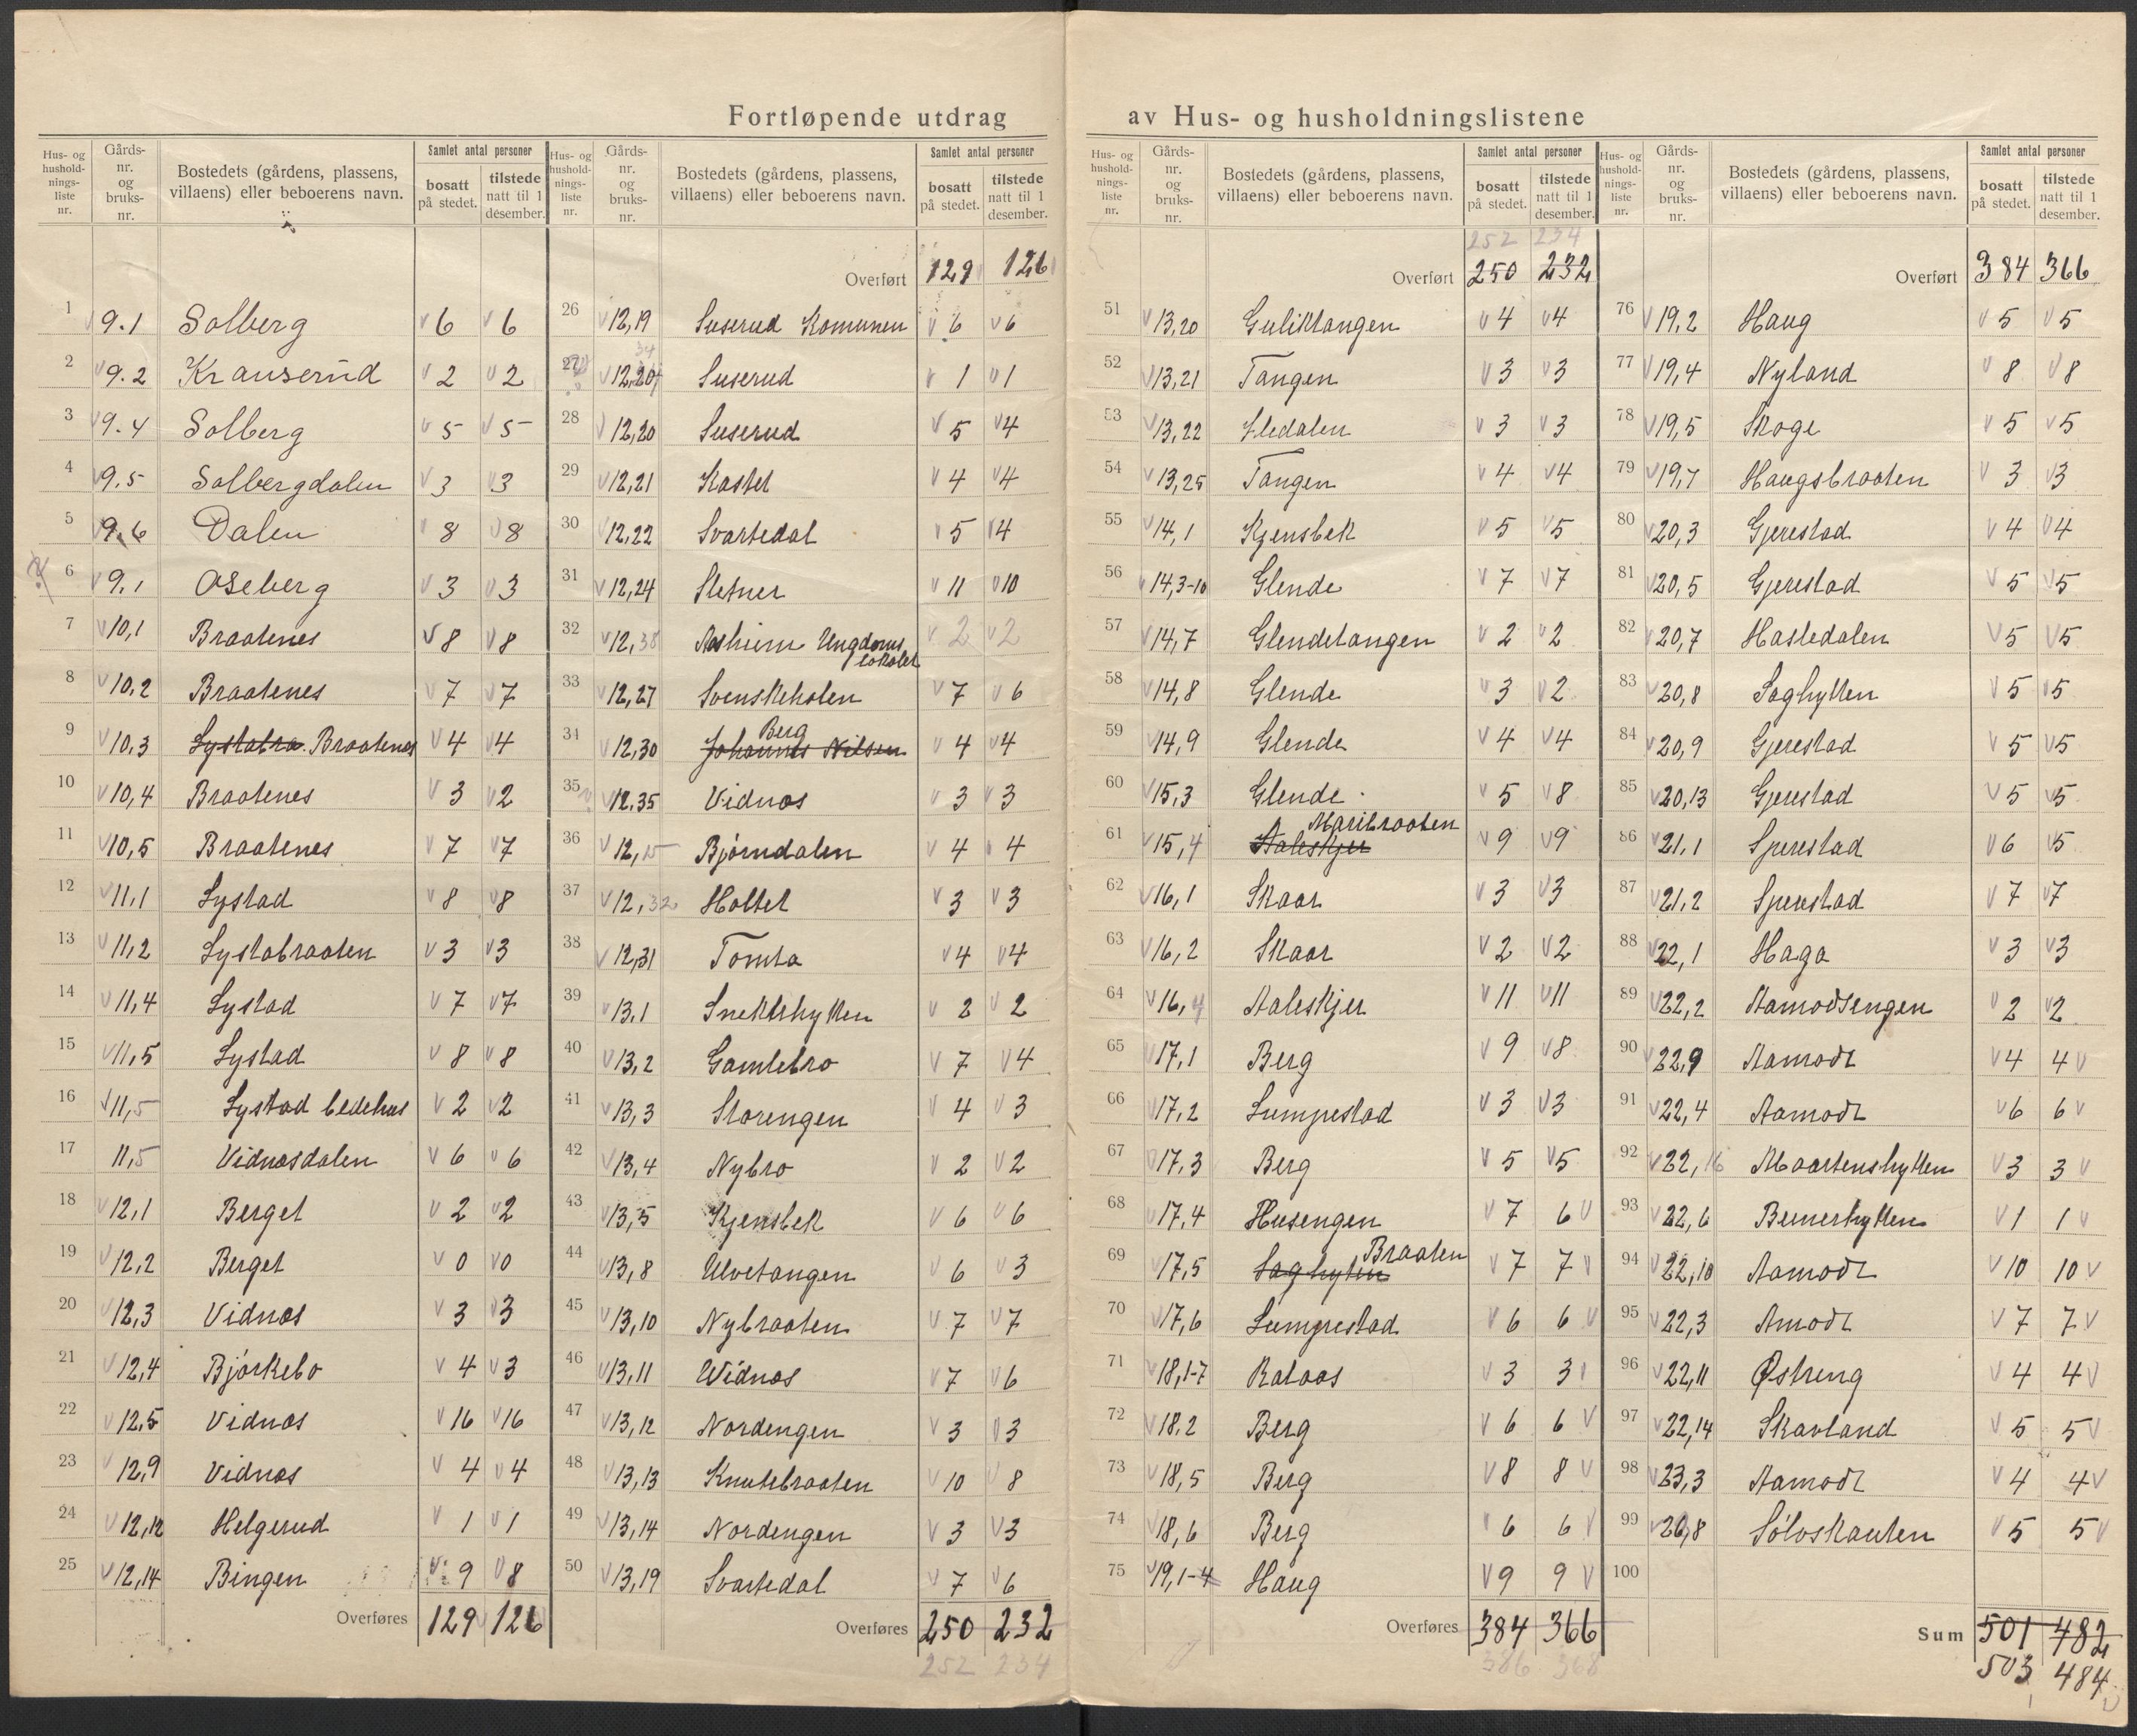 Fortløpende utdrag av Hus- og husholdningslistene
Hus- og hushold-nings-liste nr. | Gårds-nr. og bruks-nr. | Bostedets (gårdens, plassens, villaens) eller beboerens navn. | Samlet antal personer | bosatt på stedet. | tilstede natt til 1 desember.
1 9.1 Solberg 6 6
2 9.2 Kranserud 2 2
3 9.4 Solberg 5 5
4 9.5 Solbergdalen 3 3
5 9.6 Dalen 8 8
6 9.1 Oseberg 3 3
7 10,1 Braatenes 8 8
8 10,2 Braatenes 7 7
9 10,3 Lystabra Braatenes 4 4
10 10,4 Braatenes 3 2
11 10,5 Braatenes 7 7
12 11,1 Lystad 8 8
13 11,2 Lystabraaten 3 3
14 11,4 Lystad 7 7
15 11,5 Lystad 8 8
16 11,5 Lystad bedehus 2 2
17 11,5 Vidnæsdalen 6 6
18 12,1 Berget 2 2
19 12,2 Berget 0 0
20 12,3 Vidnæs 3 3
21 12,4 Bjørkebo 4 3
22 12,5 Vidnæs 16 16
23 12,9 Vidnæs 4 4
24 12,12 Helgerud 1 1
25 12,14 Bingen 9 8
Overføres 129 126
Hus- og hushold-nings-liste nr. | Gårds-nr. og bruks-nr. | Bostedets (gårdens, plassens, villaens) eller beboerens navn. | Samlet antal personer | bosatt på stedet. | tilstede natt til 1 desember.
Overført 129 126
26 12,19 Suserud Komunen 6 6
27 12,20 34 Suserud 1 1
28 12,20 Suserud 5 4
29 12,21 Kastet 4 4
30 12,22 Svartedal 5 4
31 12,24 Sletner 11 10
32 12,38 Aasheim Ungdoms lokalet 2 2
33 12,27 Svenskeholen 7 6
34 12,30 Johannes Nilsen Berg 4 4
35 12.35 Vidnæs 3 3
36 12,15 Bjørndalen 4 4
37 12,32 Holtet 3 3
38 12,31 Tomta 4 4
39 13,1 Snekkerhytten 2 2
40 13,2 Gamlebro 7 4
41 13,3 Storengen 4 3
42 13,4 Nybro 2 2
43 13,5 Kjensbek 6 6
44 13,8 Ulvetangen 6 3
45 13,10 Nybraaten 7 7
46 13,11 Widnæs 7 6
47 13,12 Nordengen 3 3
48 13,13 Knutebraaten 10 8
49 13,14 Nordengen 3 3
50 13,19 Svartedal 7 6
Overføres 250 232
252 234
Hus- og hushold-nings-liste nr. | Gårds-nr. og bruks-nr. | Bostedets (gårdens, plassens, villaens) eller beboerens navn. | Samlet antal personer | bosatt på stedet. | tilstede natt til 1 desember.
252 234
Overført 250 232
51 13,20 Guliktangen 4 4
52 13,21 Tangen 3 3
53 13,22 Sledalen 3 3
54 13,25 Tangen 4 4
55 14,1 Kjensbek 5 5
56 14,3-10 Glende 7 7
57 14,7 Glendetangen 2 2
58 14,8 Glende 3 2
59 14,9 Glende 4 4
60 15,3 Glende 5 8
61 15,4 Aaleskjer Maribraaten 9 9
62 16,1 Skaar 3 3
63 16,2 Skaar 2 2
64 16,4 Aaleskjer 11 11
65 17,1 Berg 9 8
66 17,2 Lumpestad 3 3
67 17,3 Berg 5 5
68 17,4 Husengen 7 6
69 17,5 Saghyten Braaten 7 7
70 17,6 Lumpestad 6 6
71 18,1-7 Rataas 3 3
72 18.2 Berg 6 6
73 18,5 Berg 8 8
74 18,6 Berg 6 6
75 19,1-4 Haug 9 9
Overføres 384 366
386 368
Hus- og hushold-nings-liste nr. | Gårds-nr. og bruks-nr. | Bostedets (gårdens, plassens, villaens) eller beboerens navn. | Samlet antal personer | bosatt på stedet. | tilstede natt til 1 desember.
Overført 384 366
76 19,2 Haug 5 5
77 19,4 Nyland 8 8
78 19,5 Skoge 5 5
79 19,7 Haugsbraaten 3 3
80 20,3 Gjerestad 4 4
81 20,5 Gjerestad 5 5
82 20,7 Hasledalen 5 5
83 20,8 Saghytten 5 5
84 20,9 Gjerestad 5 5
85 20,13 Gjerestad 5 5
86 21,1 Sperestad 6 5
87 21,2 Sperestad 7 7
88 22,1 Haga 3 3
89 22,2 Aamodsengen 2 2
90 22,9 Aamodt 4 4
91 22,4 Aamodt 6 6
92 22,16 Maartenshytten 3 3
93 22,6 Bennerhytten 1 1
94 22,10 Aamodt 10 10
95 22,3 Amodt 7 7
96 22,11 Østreng 4 4
97 22,14 Skavland 5 5
98 23,3 Aamodt 4 4
99 26,8 Sølvskauten 5 5
100
Sum 501 482
503 484